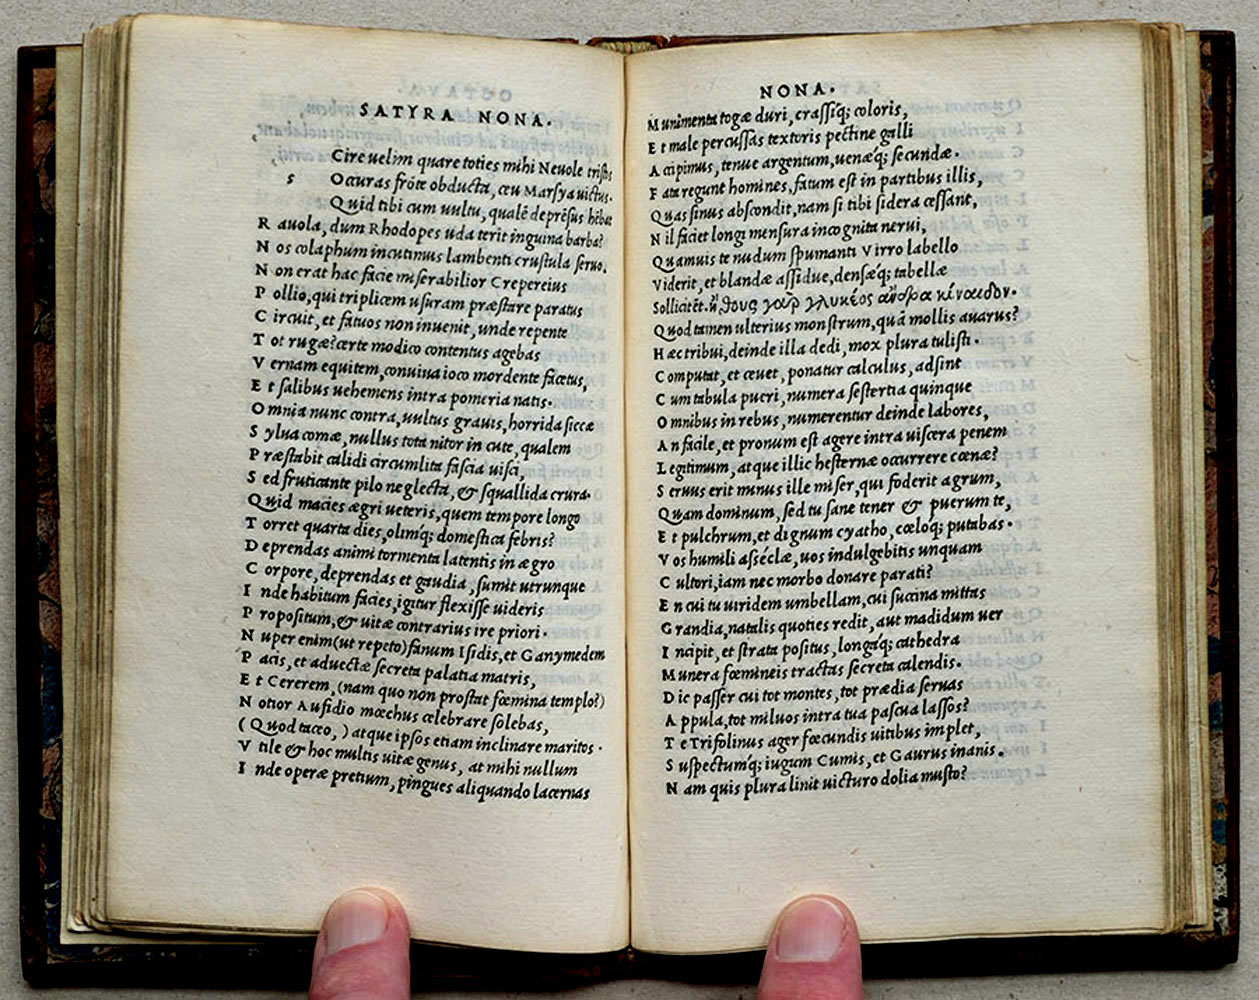 SATYRA NONA.
Cire uelim quare toties mihi Neuole tristis
s Occuras frōte obducta, ceu Marsya uictus.
Quid tibi cum uultu, qualē deprēsus habebat
R auola, dum Rhodopes uda terit inguina barba?
N os colaphum incutimus lambenti crustula seruo.
N on erat hac facie miserabilior Crepereius
P ollio, qui triplicem usuram præstare paratus
C ircuit, et fatuos non inuenit, unde repente
T ot rugæ? certe modico contentus agebas
V ernam equitem, conuiua ioco mordente facetus,
E t salibus uehemens intra pomeria natis.
O mnia nunc contra, uultus grauis, horrida siccæ
S ylua comæ, nullus tota nitor in cute, qualem
P ræstabit calidi circumlita fascia uisci,
S ed fruticante pilo neglecta, & squallida crura.
Quid macies ægri ueteris, quem tempore longo
T orret quarta dies, olimq́; domestica febris?
D eprendas animi tormenta latentis in ægro
C orpore, deprendas et gaudia, sumit utrunque
I nde habitum facies, igitur flexisse uideris
P ropositum, & uitæ contrarius ire priori.
N uper enim (ut repeto) fanum Isidis, et Ganymedem
P acis, et aduectæ secreta palatia matris,
E t Cererem, (nam quo non prostat fœmina templo?)
N otior Aufidio mœchus celebrare solebas,
( Quod taceo, ) atque ipsos etiam inclinare maritos.
V tile & hoc multis uitæ genus, at mihi nullum
I nde operæ pretium, pingues aliquando lacernas
NONA.
Munimenta togæ duri, crassiq́; coloris,
E t male percussas textoris pectine galli
A ccipimus, tenue argentum, uenæq́; secundæ.
F ata regunt homines, fatum est in partibus illis,
Quas sinus abscondit, nam si tibi sidera cessant,
N il faciet longi mensura incognita nerui,
Quamuis te nudum spumanti Virro labello
Viderit, et blandæ assidue, densæq́; tabellæ
Sollicitēt. ἤθους γαρ γλυκέος ανδρα κίναιδον.
Quod tamen ulterius monstrum, quā mollis auarus?
H æc tribui, deinde illa dedi, mox plura tulisti.
C omputat, et ceuet, ponatur calculus, adsint
C um tabula pueri, numera sestertia quinque
O mnibus in rebus, numerentur deinde labores,
A n facile, et pronum est agere intra uiscera penem
L egitimum, atque illic hesternæ occurrere cœnæ?
S eruus erit minus ille miser, qui foderit agrum,
Quam dominum, sed tu sane tener & puerum te,
E t pulchrum, et dignum cyatho, cœloq; putabas.
V os humili asséclæ, uos indulgebitis unquam
C ultori, iam nec morbo donare parati?
E n cui tu uiridem umbellam, cui succina mittas
G randia, natalis quoties redit, aut madidum uer
I ncipit, et strata positus, longaq́; cathedra
Munera fœmineis tractas secreta calendis.
D ic passer cui tot montes, tot prædia seruas
A ppula, tot miluos intra tua pascua lassos?
T e Trifolinus ager fœcundis uitibus implet,
S uspectumq́; iugum Cumis, et Gaurus inanis.
N am quis plura linit uicturo dolia musto?